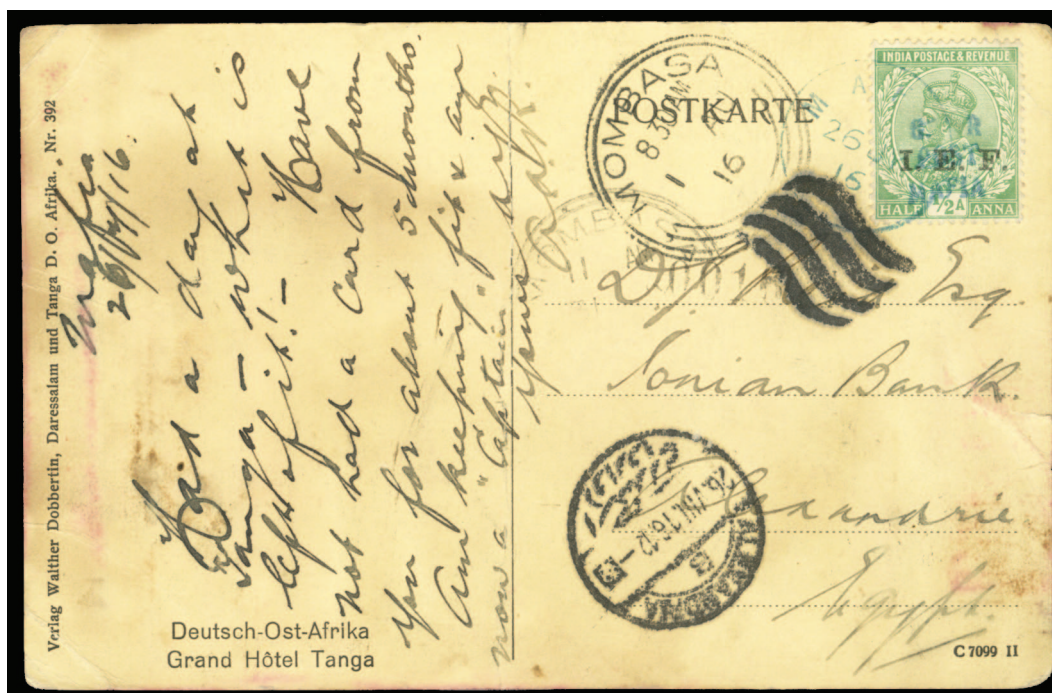 Verlag Walther Dobbertin, Daressalam und Tanga D. O. Afrika. Nr. 392
Mafia
26/7/16.
Paid a day at
Tanga – what is
left of it! –
Have
not had a card from
you for about 5 months.
Am keeping fit & am
now a "Captain"
Yours
Deutsch-Ost-Afrika
Grand Hôtel Tanga
POSTKARTE
MOMBASA
8 30 AM
1
16
MOMBASA
INDIA POSTAGE & REVENUE
I. E. F.
Mafia
HALF ½A ANNA
26
16
Esq
Ionian Bank.
Alexandrie
Egypt.
ALEXANDRIA
B
C 7099 II